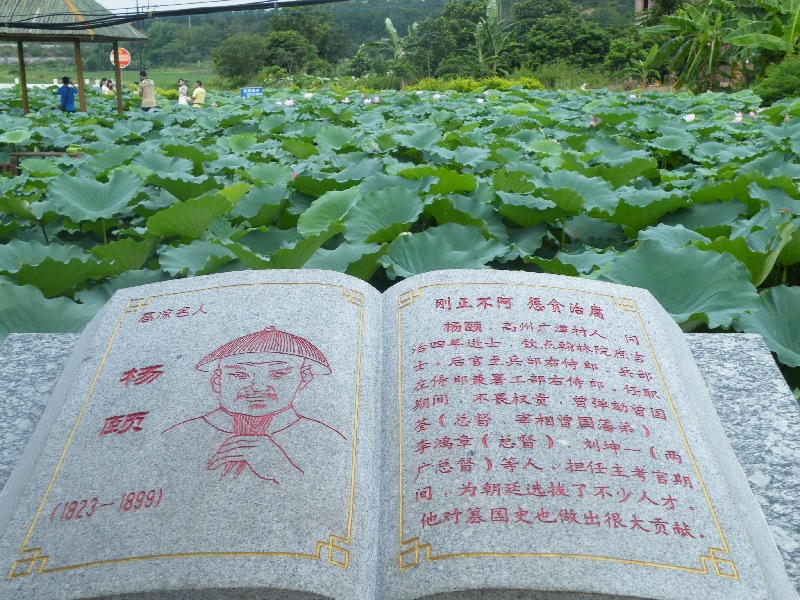 高凉名人
杨
颐
(1823—1899)
刚正不阿 惩贪治腐
杨颐,高州广潭村人,同
治四年进士,钦点翰林院庶吉
士,后官至兵部右侍郎,兵部
左侍郎兼署工部右侍郎,任职
期间,不畏权贵,曾弹劾曾国
荃(总督,宰相曾国藩弟)
李鸿章(总督),刘坤一(两
广总督)等人,担任主考官期
间,为朝廷选拔了不少人才。
他对篡国史也做出很大贡献。